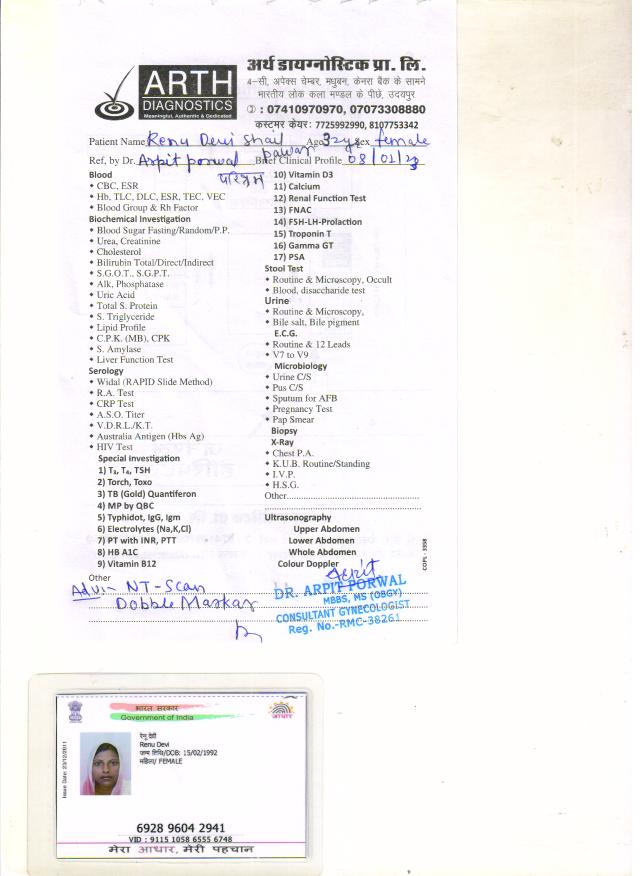 ARTH
DIAGNOSTICS
Meaningful, Authentic & Dedicated
अर्थ डायग्नोस्टिक प्रा. लि.
4-सी, अपेक्स चेम्बर, मधुबन, केनरा बैंक के सामने
भारतीय लोक कला मण्डल के पीछे, उदयपुर
: 07410970970, 07073308880
कस्टमर केयर: 7725992990, 8107753342
Patient Name Renu Devi Age 32y Sex female
Pawar
Ref, by Dr. Arpit porwal Brief Clinical Profile 08/01/23
Blood
• CBC, ESR
• Hb, TLC, DLC, ESR, TEC, VEC
• Blood Group & Rh Factor
Biochemical Investigation
• Blood Sugar Fasting/Random/P.P.
• Urea, Creatinine
• Cholesterol
• Bilirubin Total/Direct/Indirect
• S.G.O.T., S.G.P.T.
• Alk, Phosphatase
• Uric Acid
• Total S. Protein
• S. Triglyceride
• Lipid Profile
• C.P.K. (MB), CPK
• S. Amylase
• Liver Function Test
Serology
• Widal (RAPID Slide Method)
• R.A. Test
• CRP Test
• A.S.O. Titer
• V.D.R.L./K.T.
• Australia Antigen (Hbs Ag)
• HIV Test
Special Investigation
1) T₃, T₄, TSH
2) Torch, Toxo
3) TB (Gold) Quantiferon
4) MP by QBC
5) Typhidot, IgG, Igm
6) Electrolytes (Na,K,Cl)
7) PT with INR, PTT
8) HB A1C
9) Vitamin B12
10) Vitamin D3
11) Calcium
12) Renal Function Test
13) FNAC
14) FSH-LH-Prolaction
15) Troponin T
16) Gamma GT
17) PSA
Stool Test
• Routine & Microscopy, Occult
• Blood, disaccharide test
Urine
• Routine & Microscopy,
• Bile salt, Bile pigment
E.C.G.
• Routine & 12 Leads
• V7 to V9
Microbiology
• Urine C/S
• Pus C/S
• Sputum for AFB
• Pregnancy Test
• Pap Smear
Biopsy
X-Ray
• Chest P.A.
• K.U.B. Routine/Standing
• I.V.P.
• H.S.G.
Other
Ultrasonography
Upper Abdomen
Lower Abdomen
Whole Abdomen
Colour Doppler
COPL - 3558
Other
Adv:- NT-Scan
Dobble Markar
Arpit
DR. ARPIT PORWAL
MBBS, MS (OBGY)
CONSULTANT GYNECOLOGIST
Reg. No.-RMC-38261
भारत सरकार
Government of India
आधार
Issue Date: 23/12/2011
रेनू देवी
Renu Devi
जन्म तिथि/DOB: 15/02/1992
महिला/ FEMALE
6928 9604 2941
VID : 9115 1058 6555 6748
मेरा आधार, मेरी पहचान